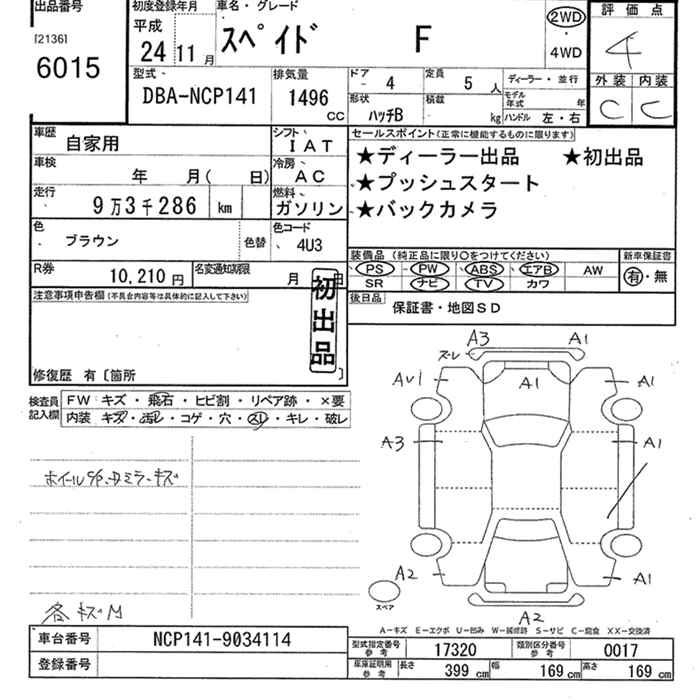 出品番号
[2136]
6015
初度登録年月
平成
24 11 月
車名・グレード
スペイド F
2WD
・
4WD
評価点
4
外装 内装
C C
型式
DBA-NCP141
排気量
1496 CC
ドア 4
定員 5 人
ディーラー・並行
形状 ハッチB
積載 kg
モデル年式 年
ハンドル 左・右
車歴 自家用
シフト IAT
車検 年 月( 日)
冷房 AC
走行 9万3千286 km
燃料 ガソリン
色 ブラウン
色替
色コード 4U3
R券 10,210 円
名変通知期限 月 日
セールスポイント(正常に機能するものに限ります)
★ディーラー出品 ★初出品
★プッシュスタート
★バックカメラ
装備品(純正品に限り〇をつけてください)
新車保証書
PS PW ABS エアB AW
SR ナビ TV カワ
有・無
後日品 保証書・地図SD
注意事項申告欄(不具合内容等は具体的に記入して下さい)
初出品
修復歴 有〔箇所 〕
検査員記入欄
FW キズ・飛石・ヒビ割・リペア跡・×要
内装 キズ・汚レ・コゲ・穴・スレ・キレ・破レ
ホイールC/P・ミラーキズ
各キズM
A3 A1
スーレ
AU1 A1 A1
A3 A1
A2 A1
スペア
A2
A−キズ E−エクボ U−凹み W−補修跡 S−サビ C−腐食 XX−交換済
車台番号 NCP141-9034114
登録番号
型式指定番号 参考 17320
類別区分番号 参考 0017
車庫証明用 参考
長さ 399 cm 幅 169 cm 高さ 169 cm